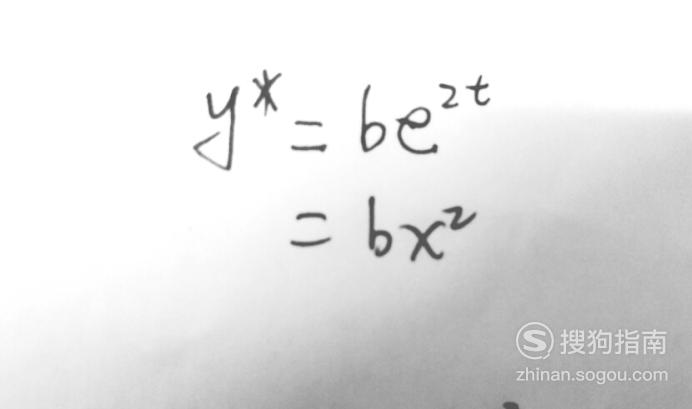 y* = be^{2t}
= bx²
搜狗指南
zhinan.sogou.com